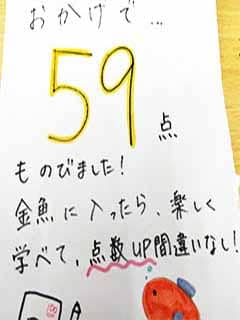 おかげで…
59点
ものびました！
金魚に入ったら、楽しく
学べて、点数UP間違いなし！